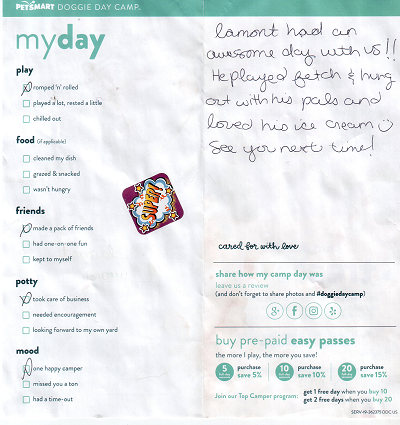 PETSMART DOGGIE DAY CAMP.
myday
play
romped 'n' rolled
played a lot, rested a little
chilled out
food (if applicable)
cleaned my dish
grazed & snacked
wasn't hungry
friends
made a pack of friends
had one-on-one fun
kept to myself
potty
took care of business
needed encouragement
looking forward to my own yard
mood
one happy camper
missed you a ton
had a time-out
Lamont had an
awesome day with us!!
He played fetch & hung
out with his pals and
loved his ice cream
See you next time!
cared for with love
share how my camp day was
leave us a review
(and don't forget to share photos and #doggiedaycamp)
g+ f
buy pre-paid easy passes
the more I play, the more you save!
5 purchase save 5%
10 purchase save 10%
20 purchase save 15%
Join our Top Camper program: get 1 free day when you buy 10
get 2 free days when you buy 20